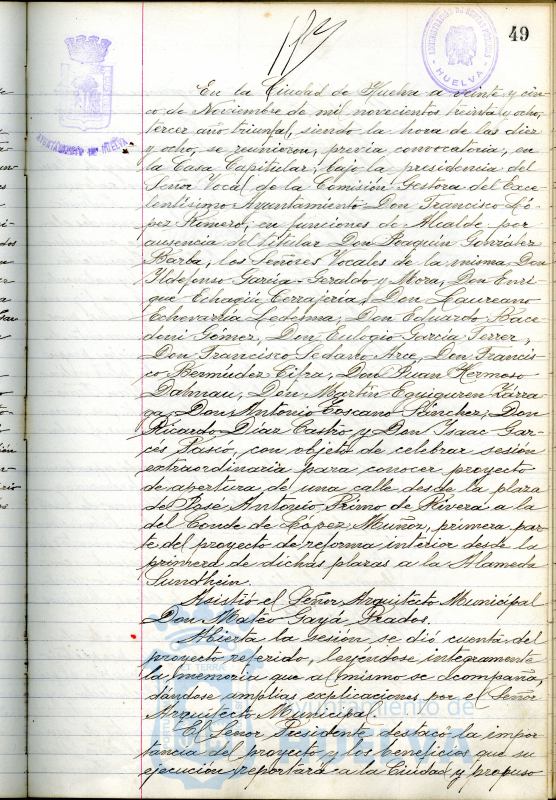 49
AYUNTAMIENTO DE HUELVA
HUELVA
En la Ciudad de Huelva a veinte y cin-
co de Noviembre de mil novecientos treinta y ocho,
tercer año triunfal, siendo la hora de las diez
y ocho, se reunieron, previa convocatoria, en
la Casa Capitular, bajo la presidencia del
Señor Vocal de la Comisión Gestora del Exce-
lentísimo Ayuntamiento Don Francisco Ló-
pez Romero, en funciones de Alcalde por
ausencia del titular Don Joaquín González
Barba, los Señores Vocales de la misma Don
Ildefonso García-Geraldo y Mora, Don Enri-
que Echagüe Terrajería, Don Laureano
Echevarría Ledesma, Don Eduardo Bace-
doni Gómez, Don Eulogio García Ferrer,
Don Francisco Sedano Arce, Don Francis-
co Bermúdez Cifra, Don Juan Hermoso
Dalmau, Don Martín Eguiguren Lárra-
ga, Don Antonio Toscano Sánchez, Don
Ricardo Díaz Castro y Don Isaac Gar-
cés Pascó, con objeto de celebrar sesión
extraordinaria para conocer proyecto
de apertura de una calle desde la plaza
de José Antonio Primo de Rivera a la
del Conde de López Muñoz, primera par-
te del proyecto de reforma interior desde la
primera de dichas plazas a la Alameda
Sundhein.
Asistió el Señor Arquitecto Municipal
Don Mateo Gayá Prados.
Abierta la sesión, se dió cuenta del
proyecto referido, leyéndose integramente
la memoria que al mismo se acompaña,
dándose amplias explicaciones por el Señor
Arquitecto Municipal.
El Señor Presidente destacó la impor-
tancia del proyecto y los beneficios que su
ejecución reportará a la Ciudad y propuso
Ayuntamiento de
HUELVA